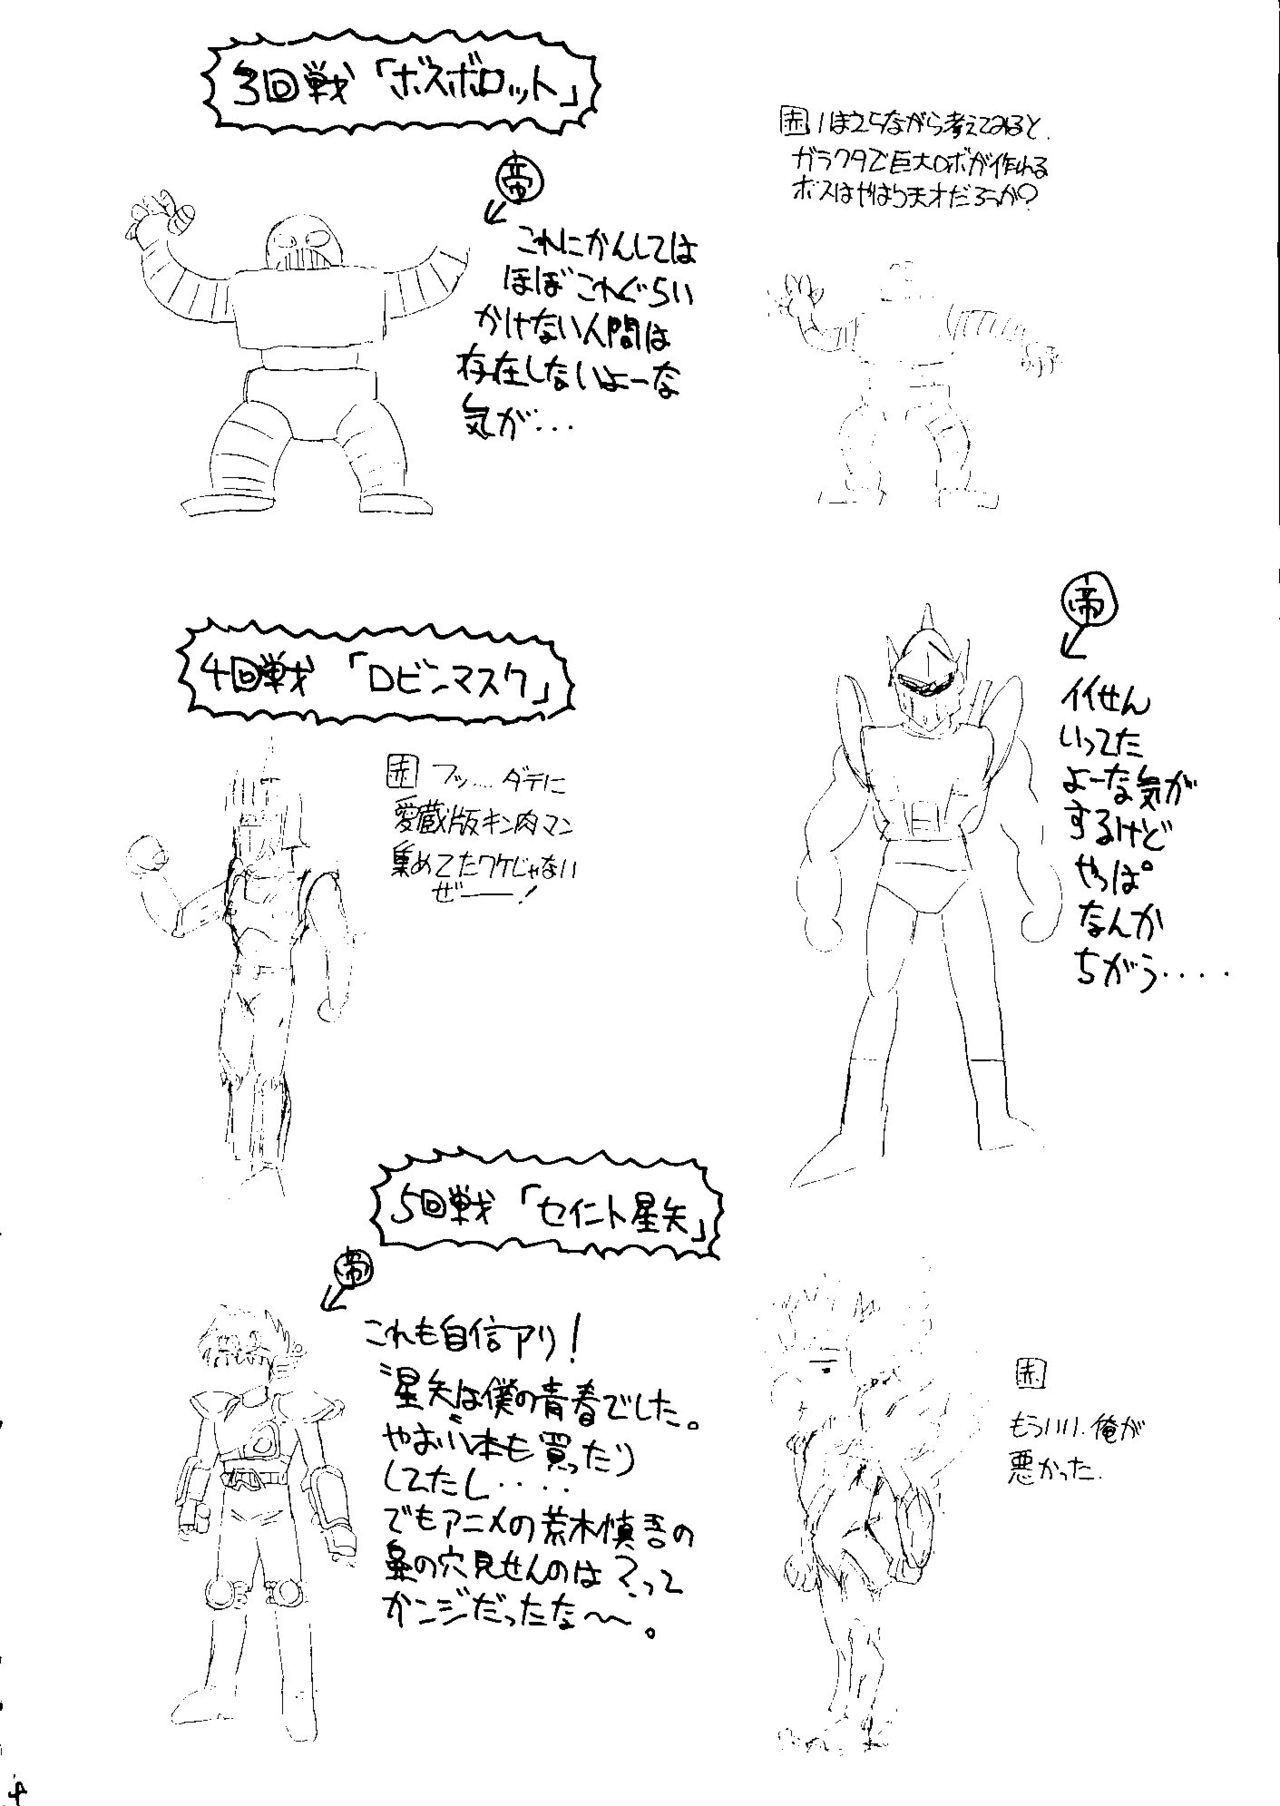 3回戦「ボスボロット」
帝
これにかんしては
ほぼこれぐらい
かけない人間は
存在しないよーな
気が・・・
赤 ながら考えてみると、
ガラクタで巨大ロボが作れる
ボスはやはり天才だろうか?
4回戦「ロビンマスク」
赤 フッ… ダテに
愛蔵版キン肉マン
集めてたワケじゃない
ぜー!
帝
イイせん
いってた
よーな気が
するけど
やっぱ
なんか
ちがう・・・・
5回戦「セイント星矢」
帝
これも自信アリ!
"星矢"は僕の青春でした。
やおい本も買ったり
してたし・・・・
でもアニメの荒木慎吾の
鼻の穴見せんのは?って
カンジだったな〜〜。
赤
もういい、俺が
悪かった、
4